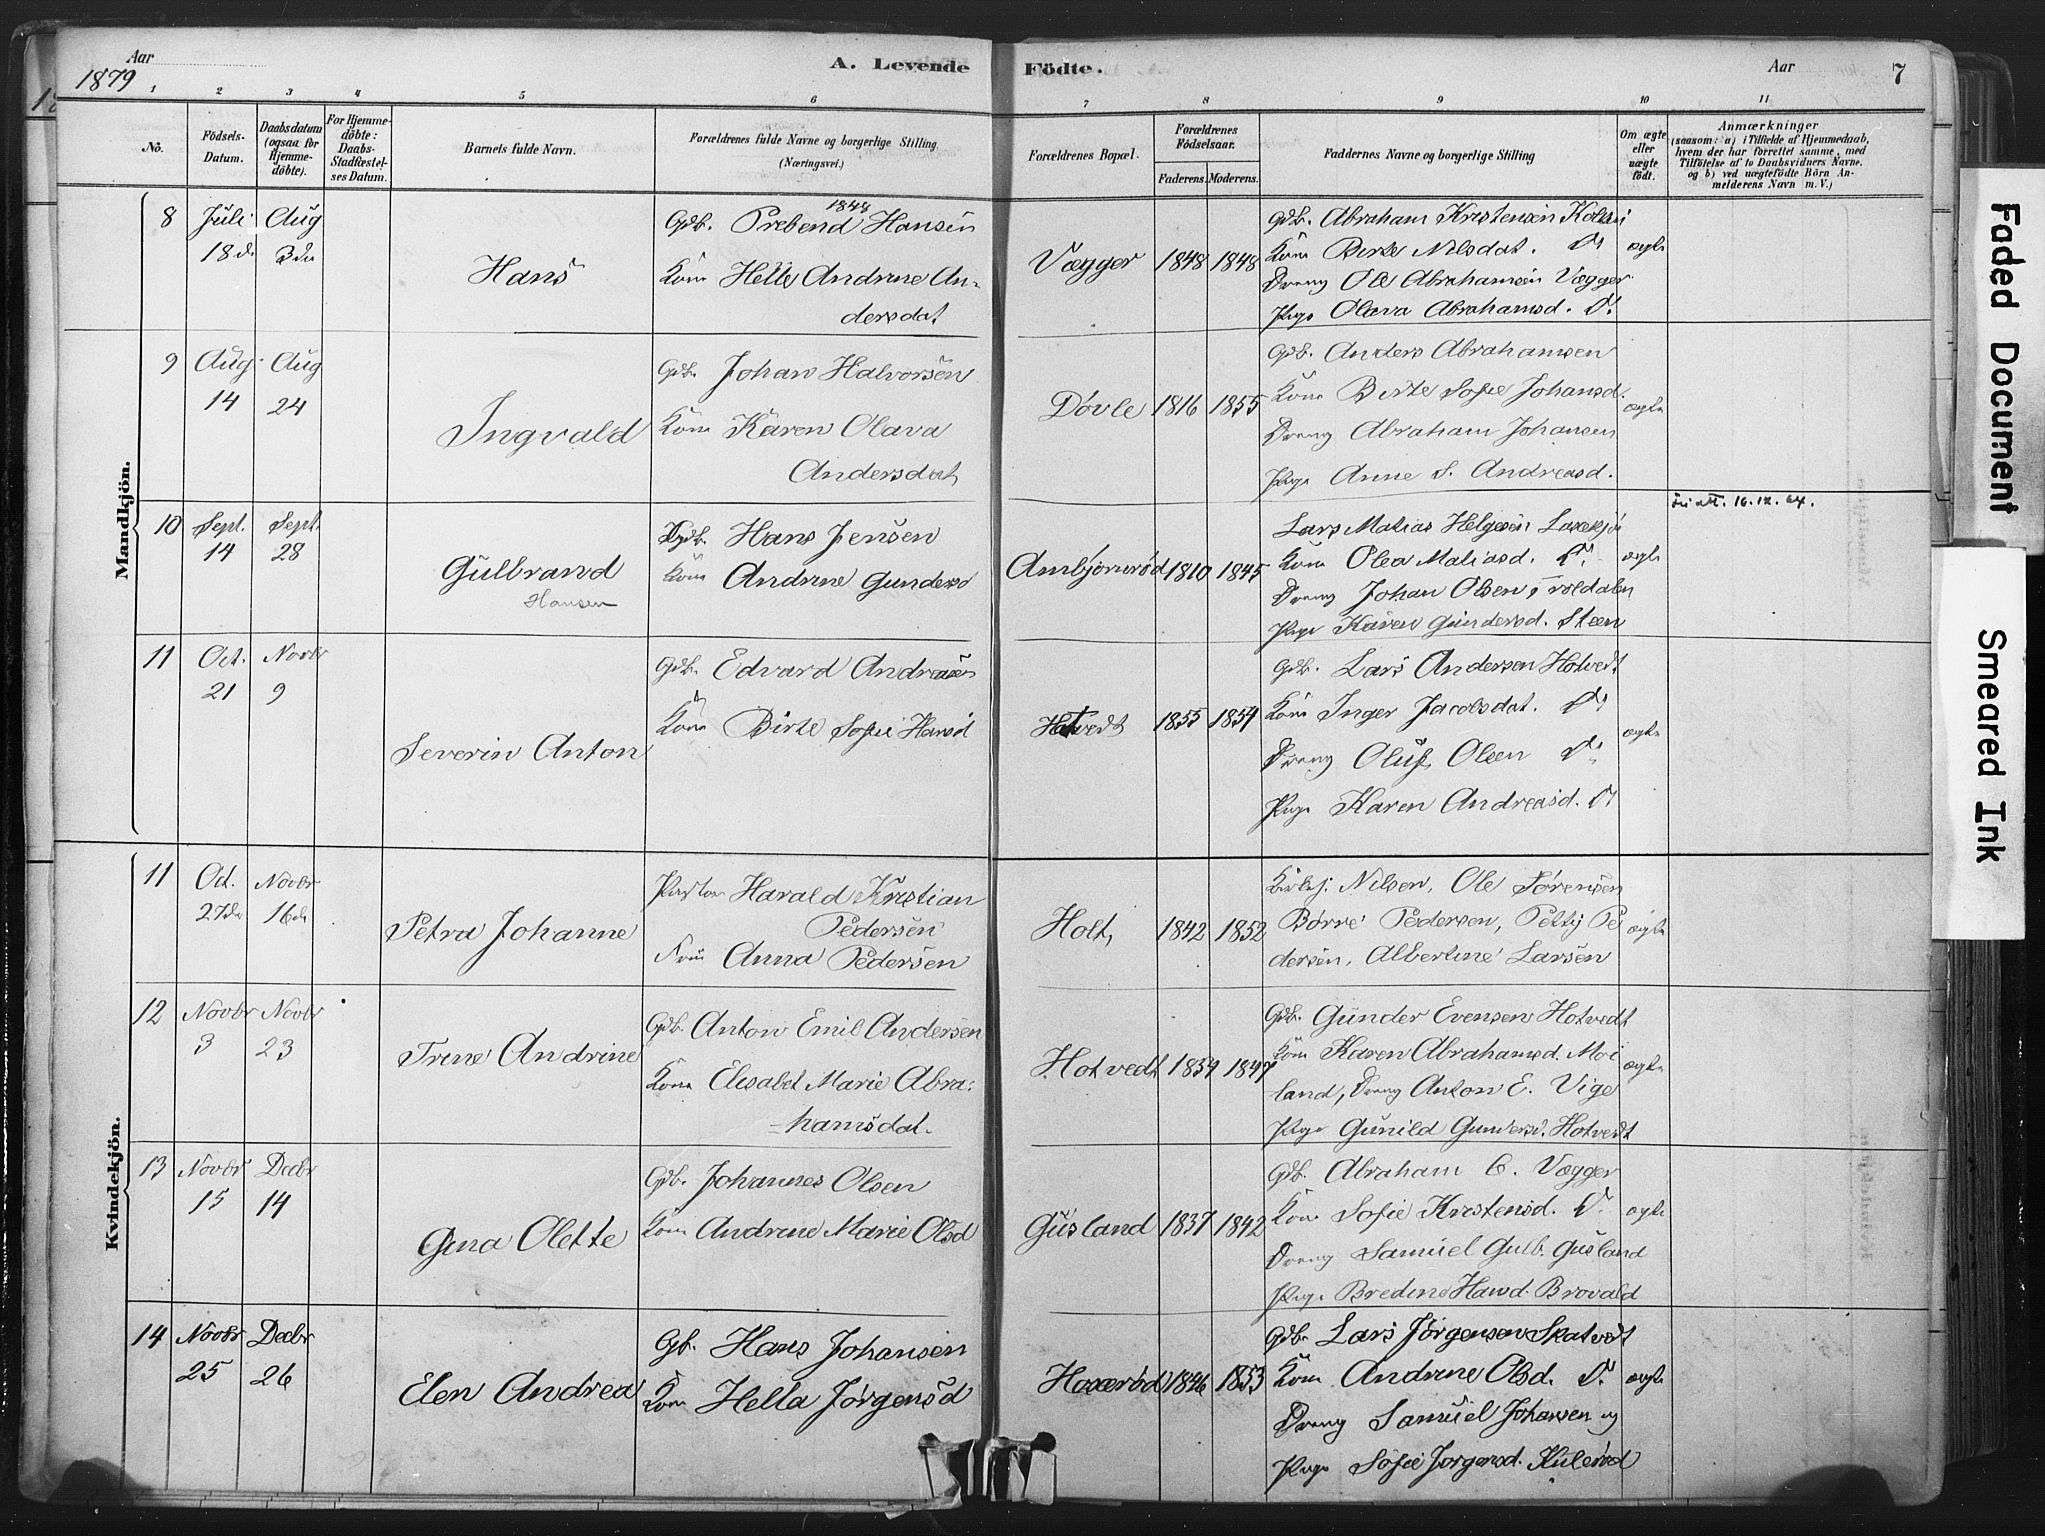 Aar
1879
A. Levende
Födte.
Aar
7
1 2 3 4 5 6 7 8 9 10 11
No.
Födsels-
Datum.
Daabsdatum
(ogsaa for
Hjemme-
döbte).
For Hjemme-
döbte:
Daabs-
Stadfæstel-
ses Datum.
Barnets fulde Navn.
Forældrenes fulde Navne og borgerlige Stilling
(Næringsvei.)
Forældrenes Bopæl.
Forældrenes
Födselsaar.
Faderens. Moderens.
Faddernes Navne og borgerlige Stilling
Om ægte
eller
uægte
födt.
Anmærkninger
(saasom: a) i Tilfælde af Hjemmedaab,
hvem der har forrettet samme, med
Tilföielse af to Daabsvidners Navne.
og b) ved uægtefödte Börn An-
melderens Navn m. V.)
Mandkjön.
8
Juli
18d.
Aug
3die
Hans
1848
Gdb. Prebend Hansen
Kone Helle Andrine An-
dersdat
Vægger
1848 1848
Gdb. Abraham Kristensen
Kone Birte Nilsdat. Do
Dreng Ole Abrahamsen Vægger
Pige Olava Abrahamsd. Do
ægte
9
Aug
14
Aug
24
Ingvald
Gdb. Johan Halvorsen
Kone Karen Olava
Andersdat
Døvle
1816 1855
Gdb. Anders Abrahamsen
Kone Birte Sofie Johansd.
Dreng Abraham Johansen
Pige Anne S. Andreasd.
ægte
10
Sept.
14
Sept.
28
Gulbrand
Hansen
Gdb. Hans Jensen
Kone Andrine Gundersd
Ambjørnrød
1810 1845
Lars Matias Helgesen
Kone Olea Matiasd. Do
Dreng Johan Olsen Troldalen
Pige Karen Gundersd. Steen
ægte
att. 16.12.64.
11
Oct.
21
Novbr
9
Severin Anton
Gdb. Edvard Andreasen
Kone Birte Sofie Hansd
Hotvedt
1855 1854
Gdb. Lars Andersen Hotvedt
Kone Inger Jacobsdat. Do
Dreng Oluf Olsen Do
Pige Karen Andreasd. Do
ægte
Kvindekjön.
11
Oct.
27de
Novbr
16de
Petra Johanne
Pastor Harald Kristian
Pedersen
Frue Anna Pedersen
Holt,
1842 1852
Kirkesj. Nilsen, Ole Sørensen
Børre Pedersen, Petty Pe
dersen, Albertine Larsen
ægte
12
Novbr
3
Novbr
23
Trine Andrine
Gdb. Anton Emil Andersen
Kone Elisabet Marie Abra-
hamsdat.
Hotvedt
1854 1847
Gdb. Gunder Evensen Hotvedt
Kone Karen Abrahamsd. Moi
land, Dreng Anton E. Vige
Pige Gunild Gundersd. Hotvedt
ægte
13
Novbr
15
Decbr
14
Gina Olette
Gdb. Johannes Olsen
Kone Andrine Marie Olsd
Gusland
1837 1842
Gdb. Abraham C. Vægger
Kone Sofie Kristensd. Do
Dreng Samuel Gulb. Gusland
Pige Bredine Hansd. Brovald
ægte
14
Novbr
25
Decbr
26
Elen Andrea
Gb. Hans Johansen
Kone Hella Jørgensd
Haaerød
1846 1853
Gdb. Lars Jørgensen Skatvedt
Kone Andrine Olsd. Do
Dreng Samuel Johansen og
Pige Sofie Jørgensd. Kulerød
ægte
Faded Document
Smeared Ink